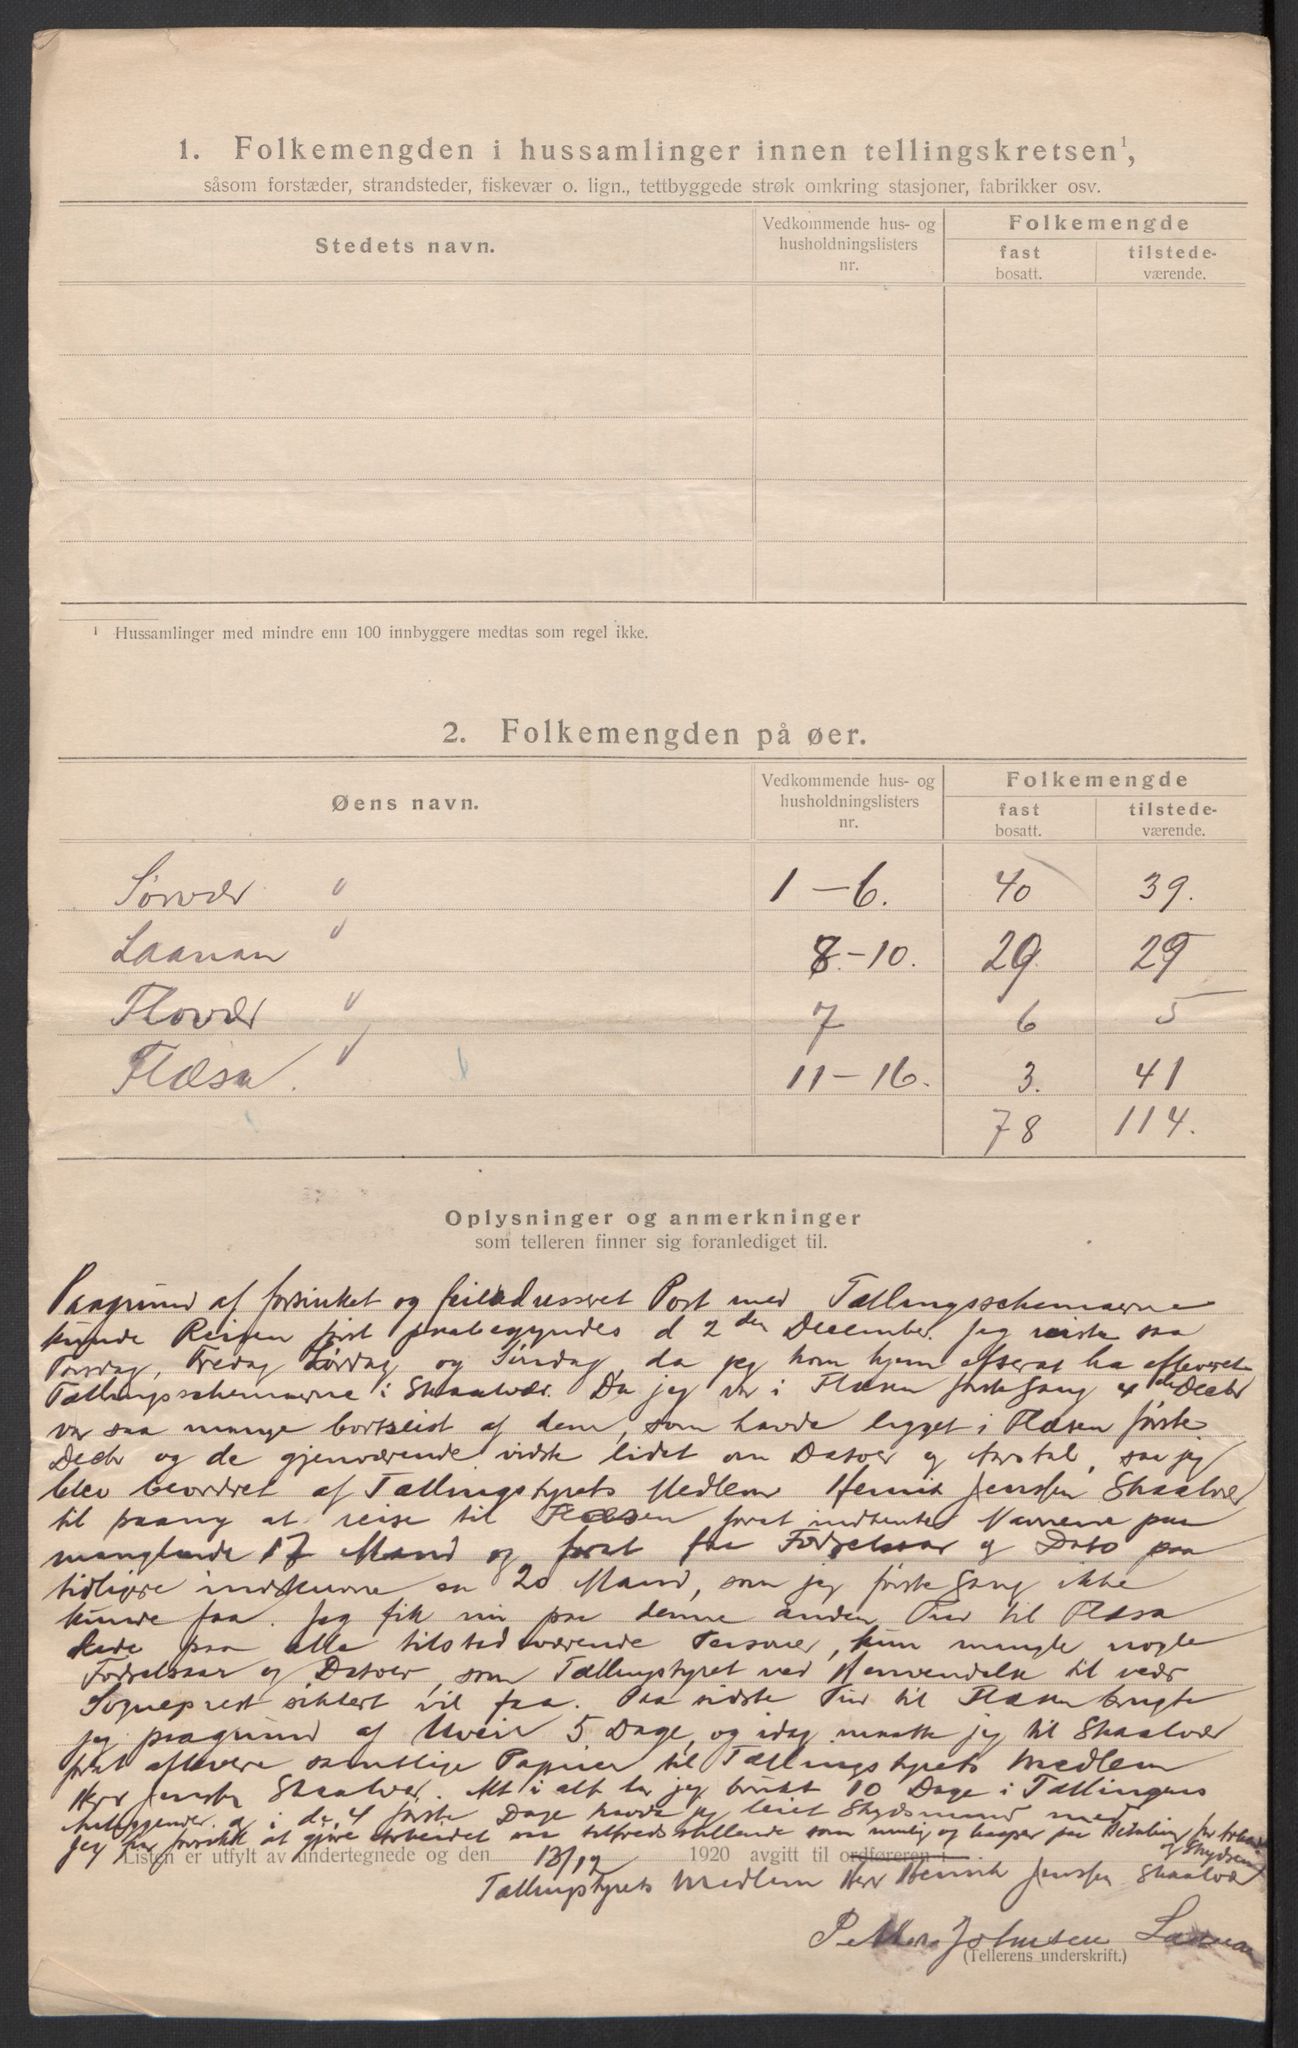 1. Folkemengden i hussamlinger innen tellingskretsen¹,
såsom forstæder, strandsteder, fiskevær o. lign., tettbyggede strøk omkring stasjoner, fabrikker osv.
Stedets navn.
Vedkommende hus- og husholdningslisters nr.
Folkemengde
fast bosatt.
tilstede-værende.
¹ Hussamlinger med mindre enn 100 innbyggere medtas som regel ikke.
2. Folkemengden på øer.
Øens navn.
Vedkommende hus- og husholdningslisters nr.
Folkemengde
fast bosatt.
tilstede-værende.
Sørvær 1 – 6. 40 39.
Laanan 8 – 10. 29. 29
Flovær 7 6 5
Flæsa. 11 – 16. 3. 41
78 114.
Oplysninger og anmerkninger
som telleren finner sig foranlediget til.
Paagrund af forsinket og feiladresseret Post med Tællingsschemaerne
kunde Reisen først paabegyndes d 2den December. Jeg reiste saa
Torsdag, Fredag Lørdag og Søndag, da jeg kom hjem efterat ha afleveret
Tællingsschemaerne i Skaalvær. Da jeg var i Flæsen første Gang 4de Decbr
var saa mange bortreist af dem, som havde ligget i Flæsen første
Decbr og de gjenværende vidste lidet om Datoer og Aarstal, saa jeg
blev beordret af Tællingstyrets Medlem Henrik Jenssen Skaalvær
til paany at reise til Flæsen forat indhente Navnene paa
manglende 17 Mand og forat faa Fødselsaar og Dato paa
tidligere indskrevne en 20 Mand, som jeg første Gang ikke
kunde faa. Jeg fik nu paa denne anden Tur til Flæsa
Rede paa alle tilstedeværende Personer, kun mangle nogle
Fødselsaar og Datoer, som Tællingstyret ved Henvendelse til vedk
Sogneprest sikkert vil faa. Paa sidste Tur til Flæsen brugte
jeg paagrund af Uveir 5 Dage, og idag maatte jeg til Skaalvær
forat aflevere samtlige Papirer til Tællingstyrets Medlem
Herr Jenssen Skaalvær. Alt i alt har jeg brukt 10 Dage i Tællingens
Anliggender og i de 4 første Dage havde jeg leiet Skydsmand med
Jeg har forsøkt at gjøre Arbeidet saa tilfredsstillende som mulig og haaper paa Betaling for Arbeide
og Skydsen
Listen er utfylt av undertegnede og den 13/12 1920 avgitt til ordføreren i
Tællingstyrets Medlem Herr Henrik Jenssen Skaalvær
Petter Johnsen Laanan
(Tellerens underskrift.)